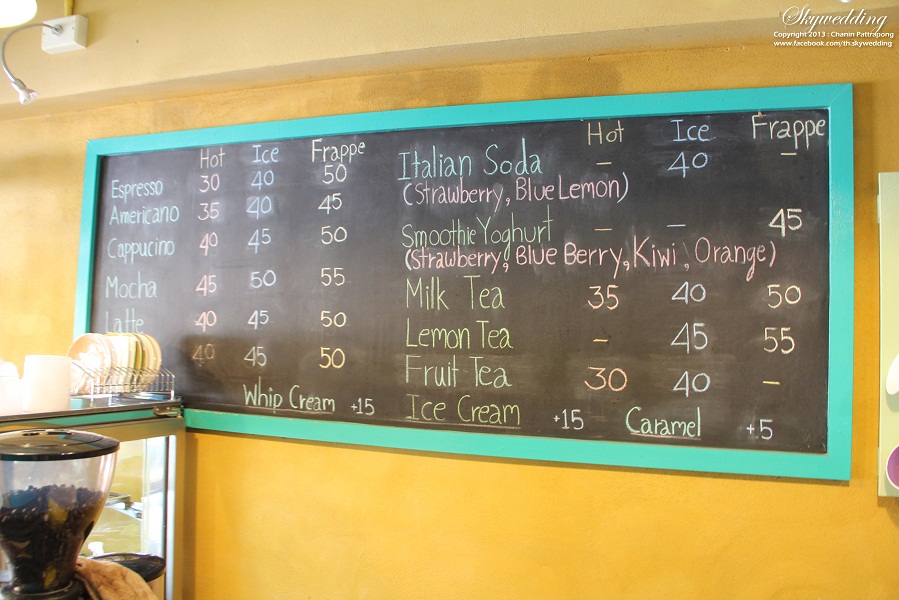 Skywedding
Copyright 2013 : Chanin Pattrapong
www.facebook.com/th.skywedding
Hot Ice Frappe
Espresso 30 40 50
Americano 35 40 45
Cappucino 40 45 50
Mocha 45 50 55
Latte 40 45 50
40 45 50
Whip Cream +15
Hot Ice Frappe
Italian Soda - 40 -
(Strawberry, Blue Lemon)
Smoothie Yoghurt - - 45
(Strawberry, Blue Berry, Kiwi, Orange)
Milk Tea 35 40 50
Lemon Tea - 45 55
Fruit Tea 30 40 -
Ice Cream +15 Caramel +5